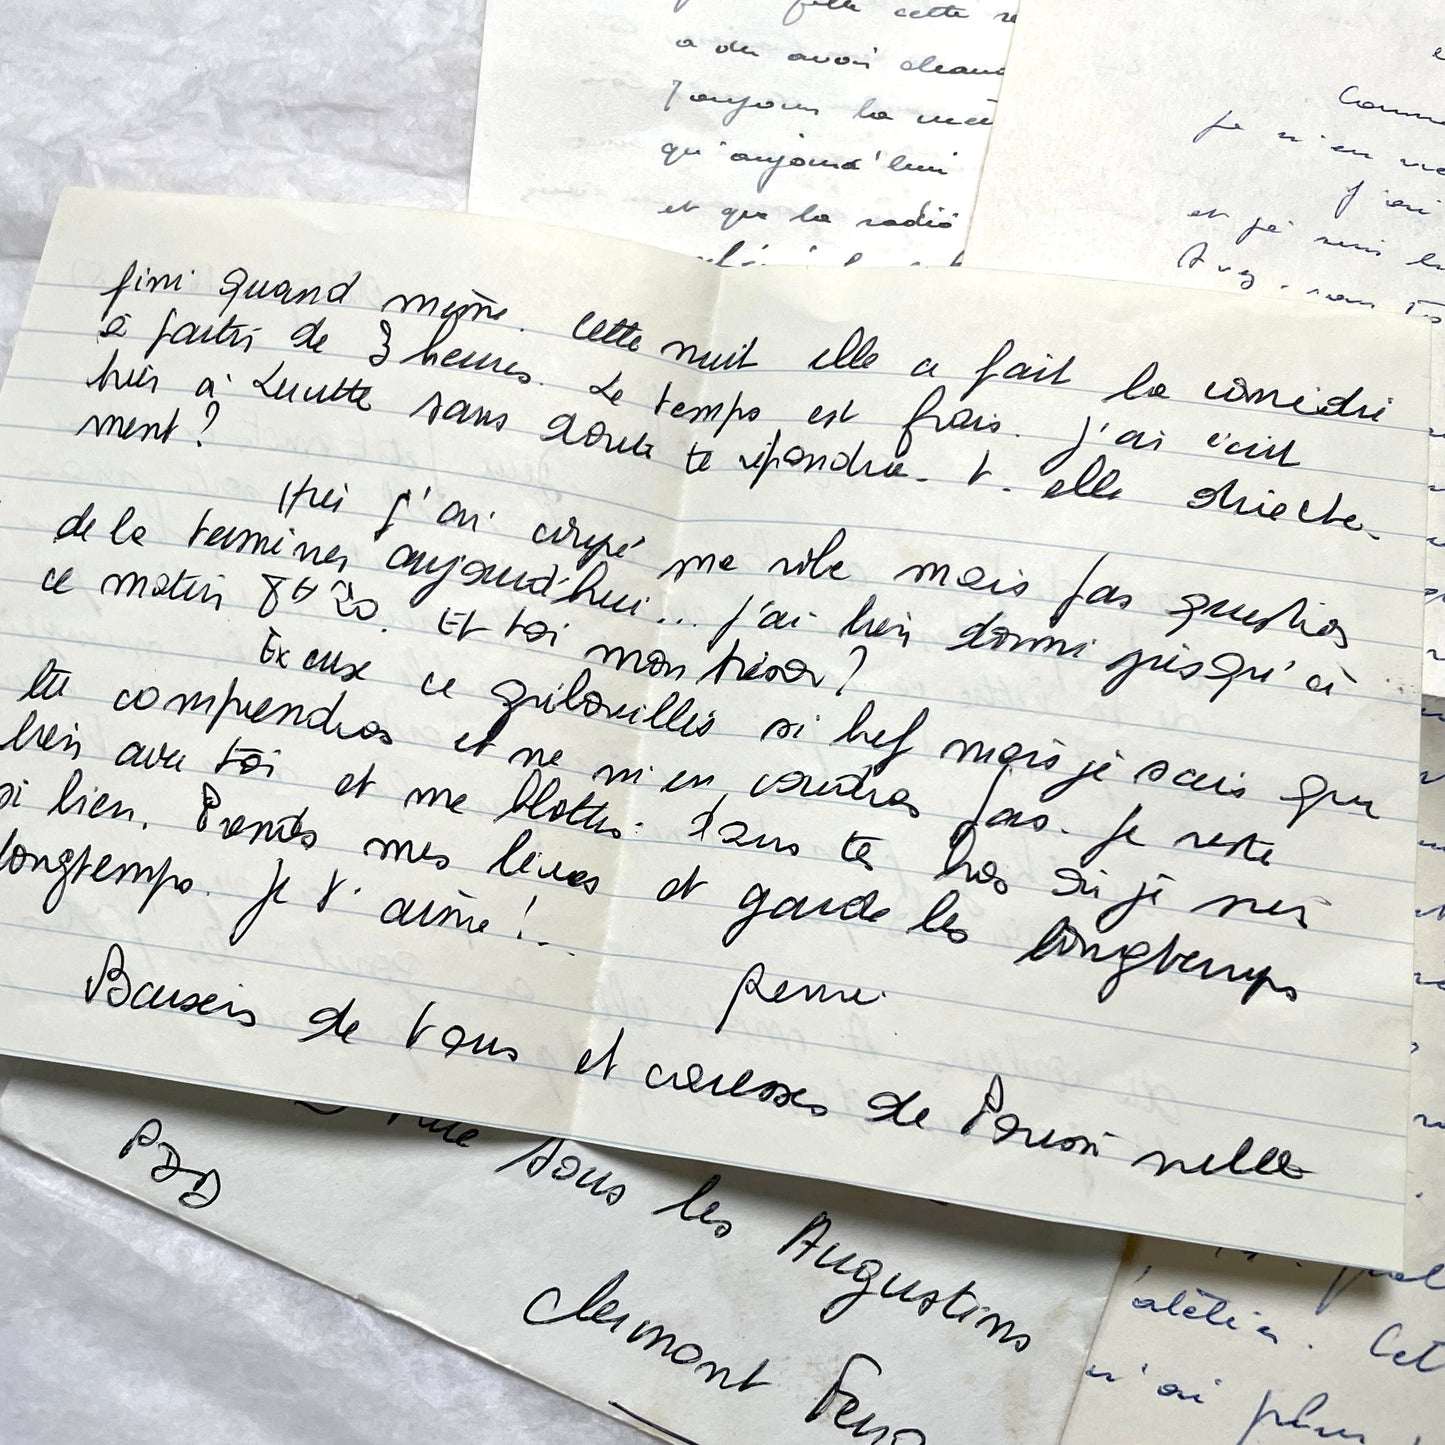 fille cette
a du avoir
Toujours la
qu'aujourd'hui
et que la radio
je n'en
J'ai
et je suis
Avez-vous
fini quand même. Cette nuit elle a fait la comédie
à partir de 3 heures. Le temps est frais. J'ai écrit
hier à Lucette sans doute te répondra-t-elle directe-
ment ?
Hier j'ai coupé ma robe mais pas question
de la terminer aujourd'hui... J'ai bien dormi jusqu'à
ce matin 8H20. Et toi mon trésor ?
Excuse ce gribouillis si bref mais je sais que
tu comprendras et ne m'en voudras pas. Je reste
bien avec toi et me blottis dans tes bras où je suis
si bien. Prends mes lèvres et garde les longtemps
longtemps. Je t'aime !..
Baisers de tous et caresses de Poussinette
rue sous les Augustins
Clermont Ferra
PDD
l'atelier. Cet
n'ai plus